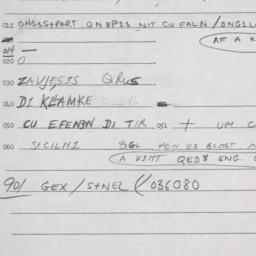 012 ONGBS+PART ONEPIS NIT CU FALN / ONGILL
AF A K
014 —
020 O
030 ZAVJESIS QRUS
040 DI KLAMKE
050 CU EFENBN DI TIR 052 + UM C
060 S+CILNI BGL VEN ES BLOST A
A VIHT QEDS ENG. C
90/ GEX / S+NEL (036080